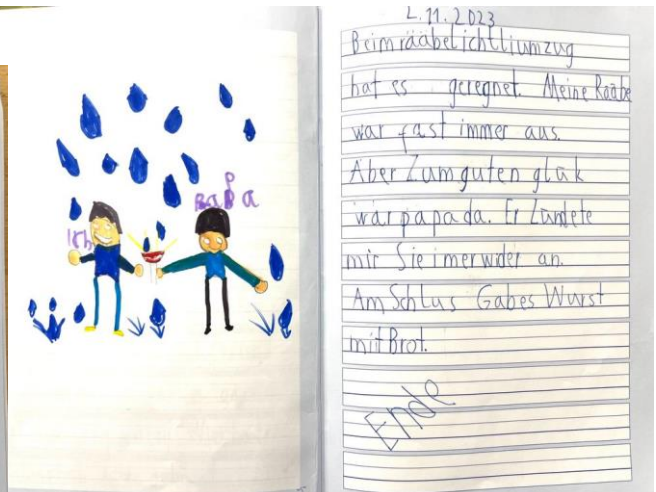 Ich
PaPa
2.11.2023
Beim rääbelichtliumzug
hat es geregnet. Meine Rääbe
war fast immer aus.
Aber Zum guten glük
war papa da. Er Zündete
mir Sie imer wider an.
Am Schlus Gab es Wurst
mit Brot.
Ende